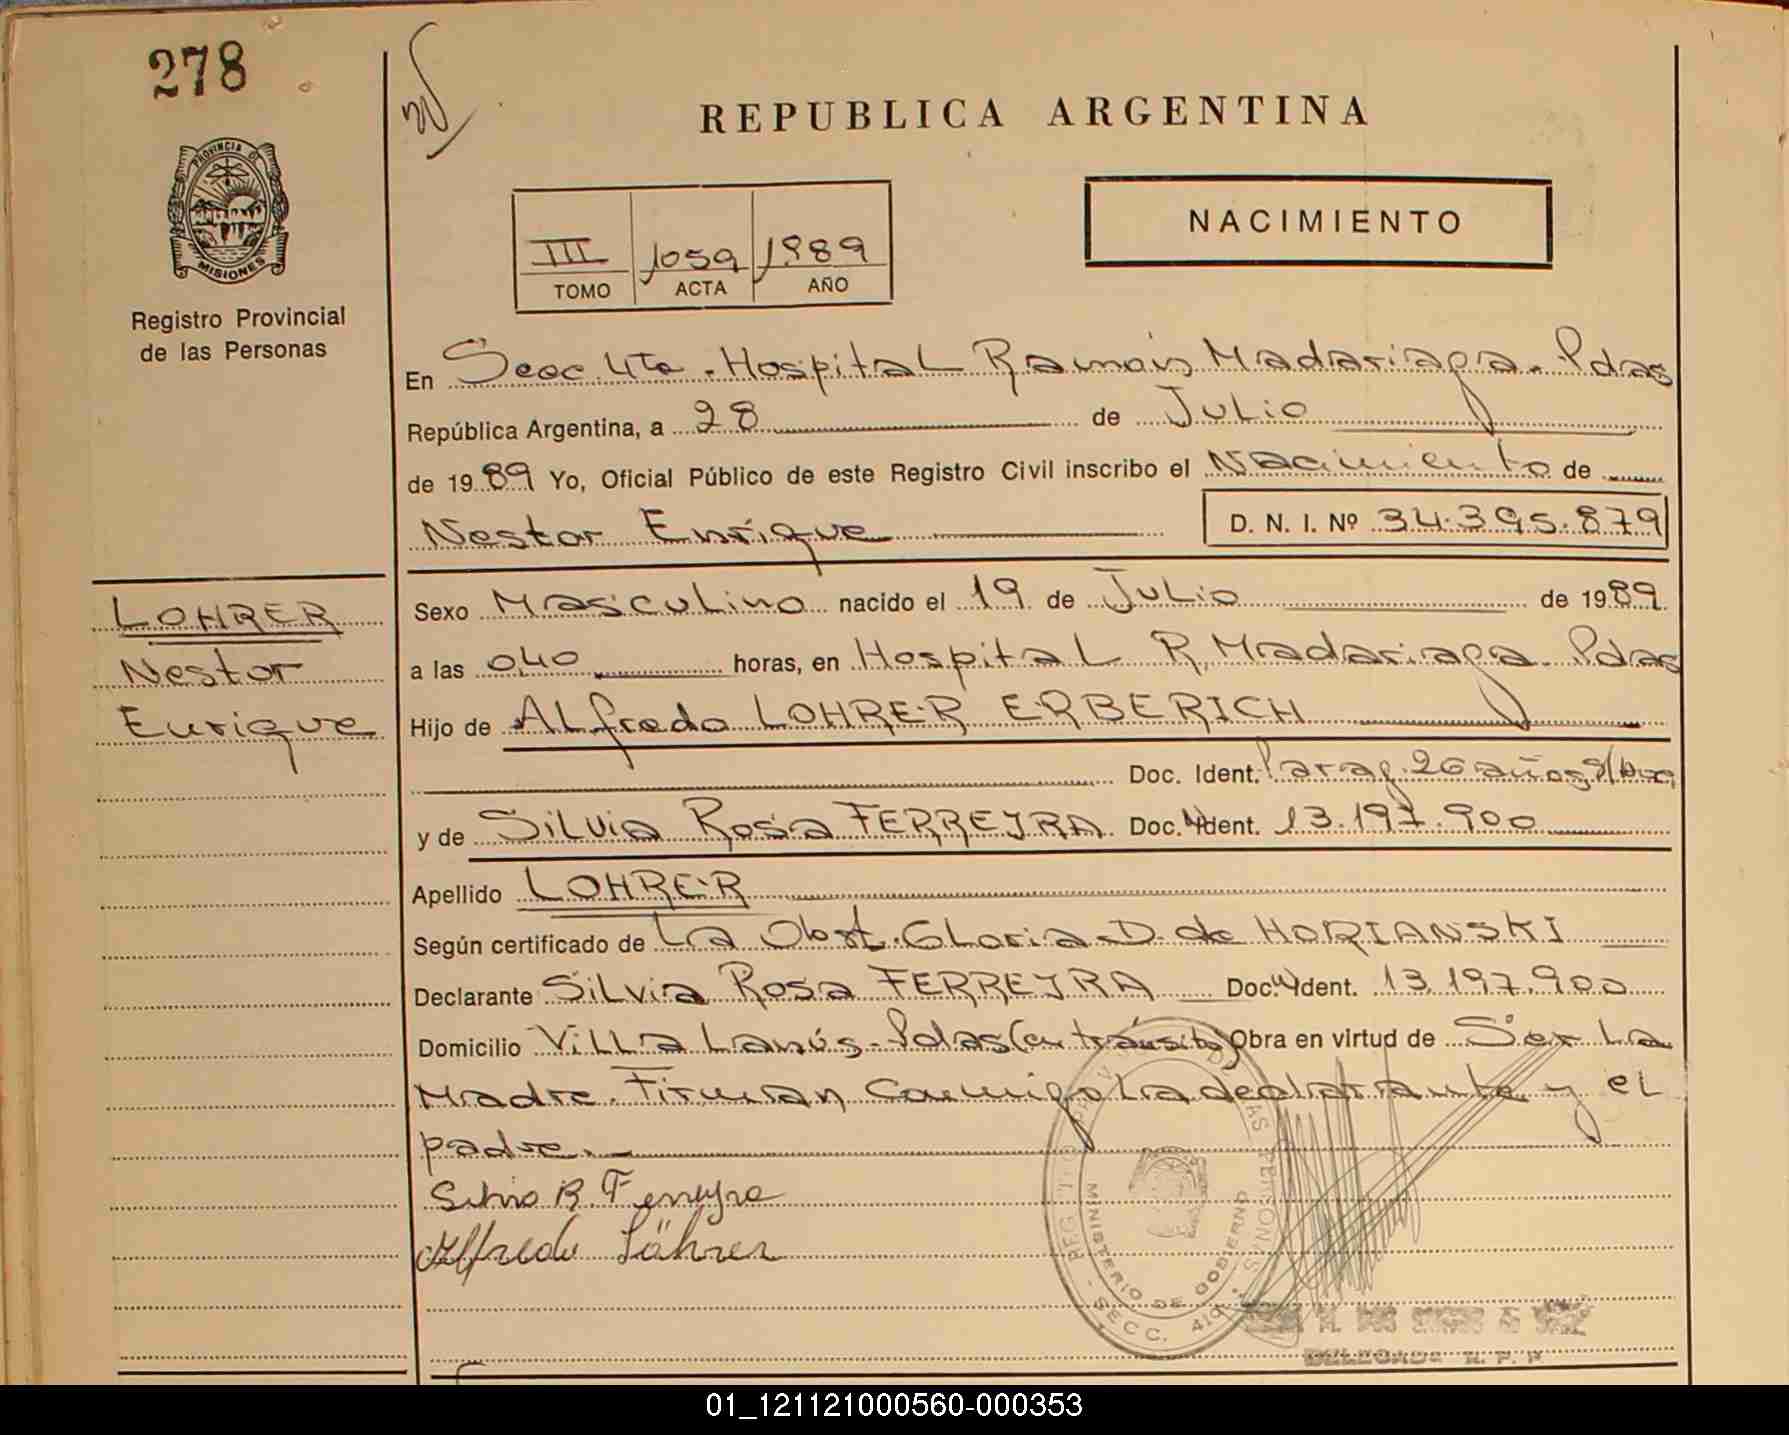 278
REPUBLICA ARGENTINA
PROVINCIA DE
MISIONES
Registro Provincial
de las Personas
III 1059 1989
TOMO ACTA AÑO
NACIMIENTO
En Secc 4ta. Hospital Ramón Madariaga. Pdas
República Argentina, a 28 de Julio
de 1989 Yo, Oficial Público de este Registro Civil inscribo el Nacimiento de
Nestor Enrique D. N. I. Nº 34.395.879
LOHRER
Nestor
Enrique
Sexo Masculino nacido el 19 de Julio de 1989
a las 0,40 horas, en Hospital R. Madariaga. Pdas
Hijo de Alfredo LOHRER ERBERICH
Doc. Ident. Parag. 26 años s/Doc
y de Silvia Rosa FERREYRA Doc. Ident. 13.197.900
Apellido LOHRER
Según certificado de La Obst. Gloria D. de HORIANSKI
Declarante Silvia Rosa FERREYRA Doc. Ident. 13.197.900
Domicilio Villa Lanús - Pdas (en tránsito) Obra en virtud de Ser La
Madre. Firman Conmigo La declarante y el
padre.
Silvia R. Ferreyra
Alfredo Löhrer
MINISTERIO DE GOBIERNO
SECC. 4ta.
DELEGADA R. P. P.
01_121121000560-000353